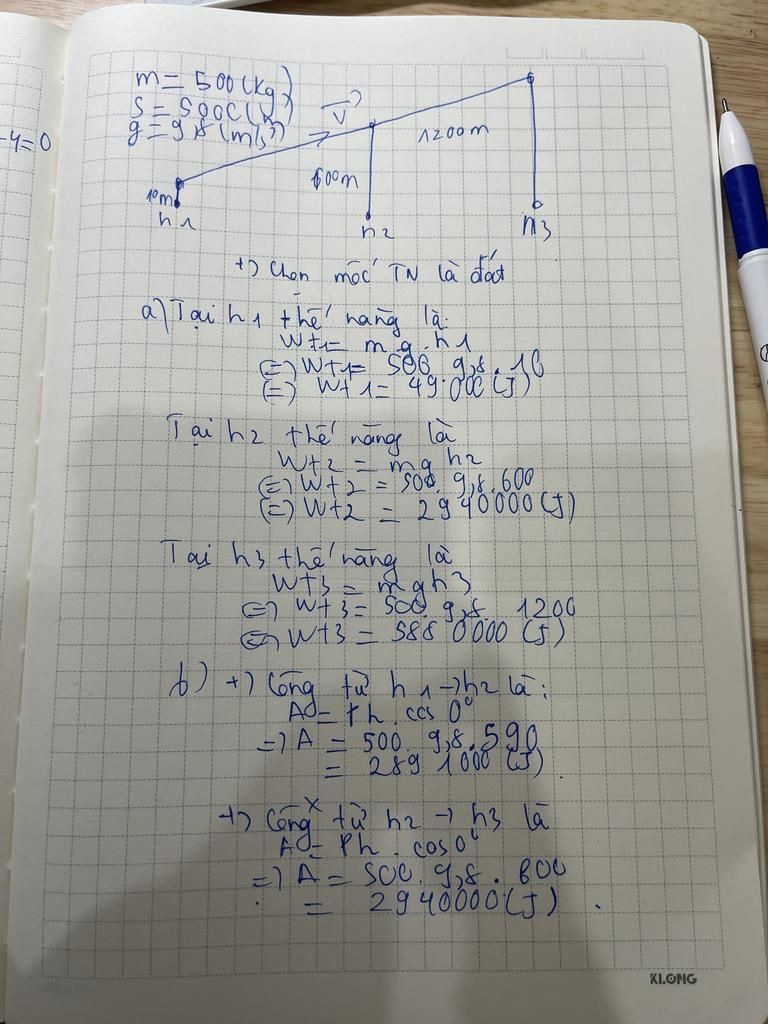 -4=0
m = 500 (kg)
S = 500C (m)
g = 9,8 (m/s²)
V
1200m
600m
10m
h1
h2
h3
+) Chọn mốc TN là đất
a) Tại h1 thế năng là:
Wt1 = m g. h1
(=) Wt1 = 500. 9,8. 10
(=) Wt1 = 49.000 (J)
Tại h2 thế năng là
Wt2 = mg h2
(=) Wt2 = 500. 9,8. 600
(=) Wt2 = 2940000 (J)
Tại h3 thế năng là
Wt3 = mgh3
(=) Wt3 = 500. 9,8. 1200
(=) Wt3 = 588 0000 (J)
b) +) Công từ h1 → h2 là:
A = Ph. cos 0°
=) A = 500. 9,8. 590
= 289 1000 (J)
+) Công từ h2 → h3 là
A = Ph. cos 0°
=) A = 500. 9,8. 600
= 2940000 (J).
KLONG